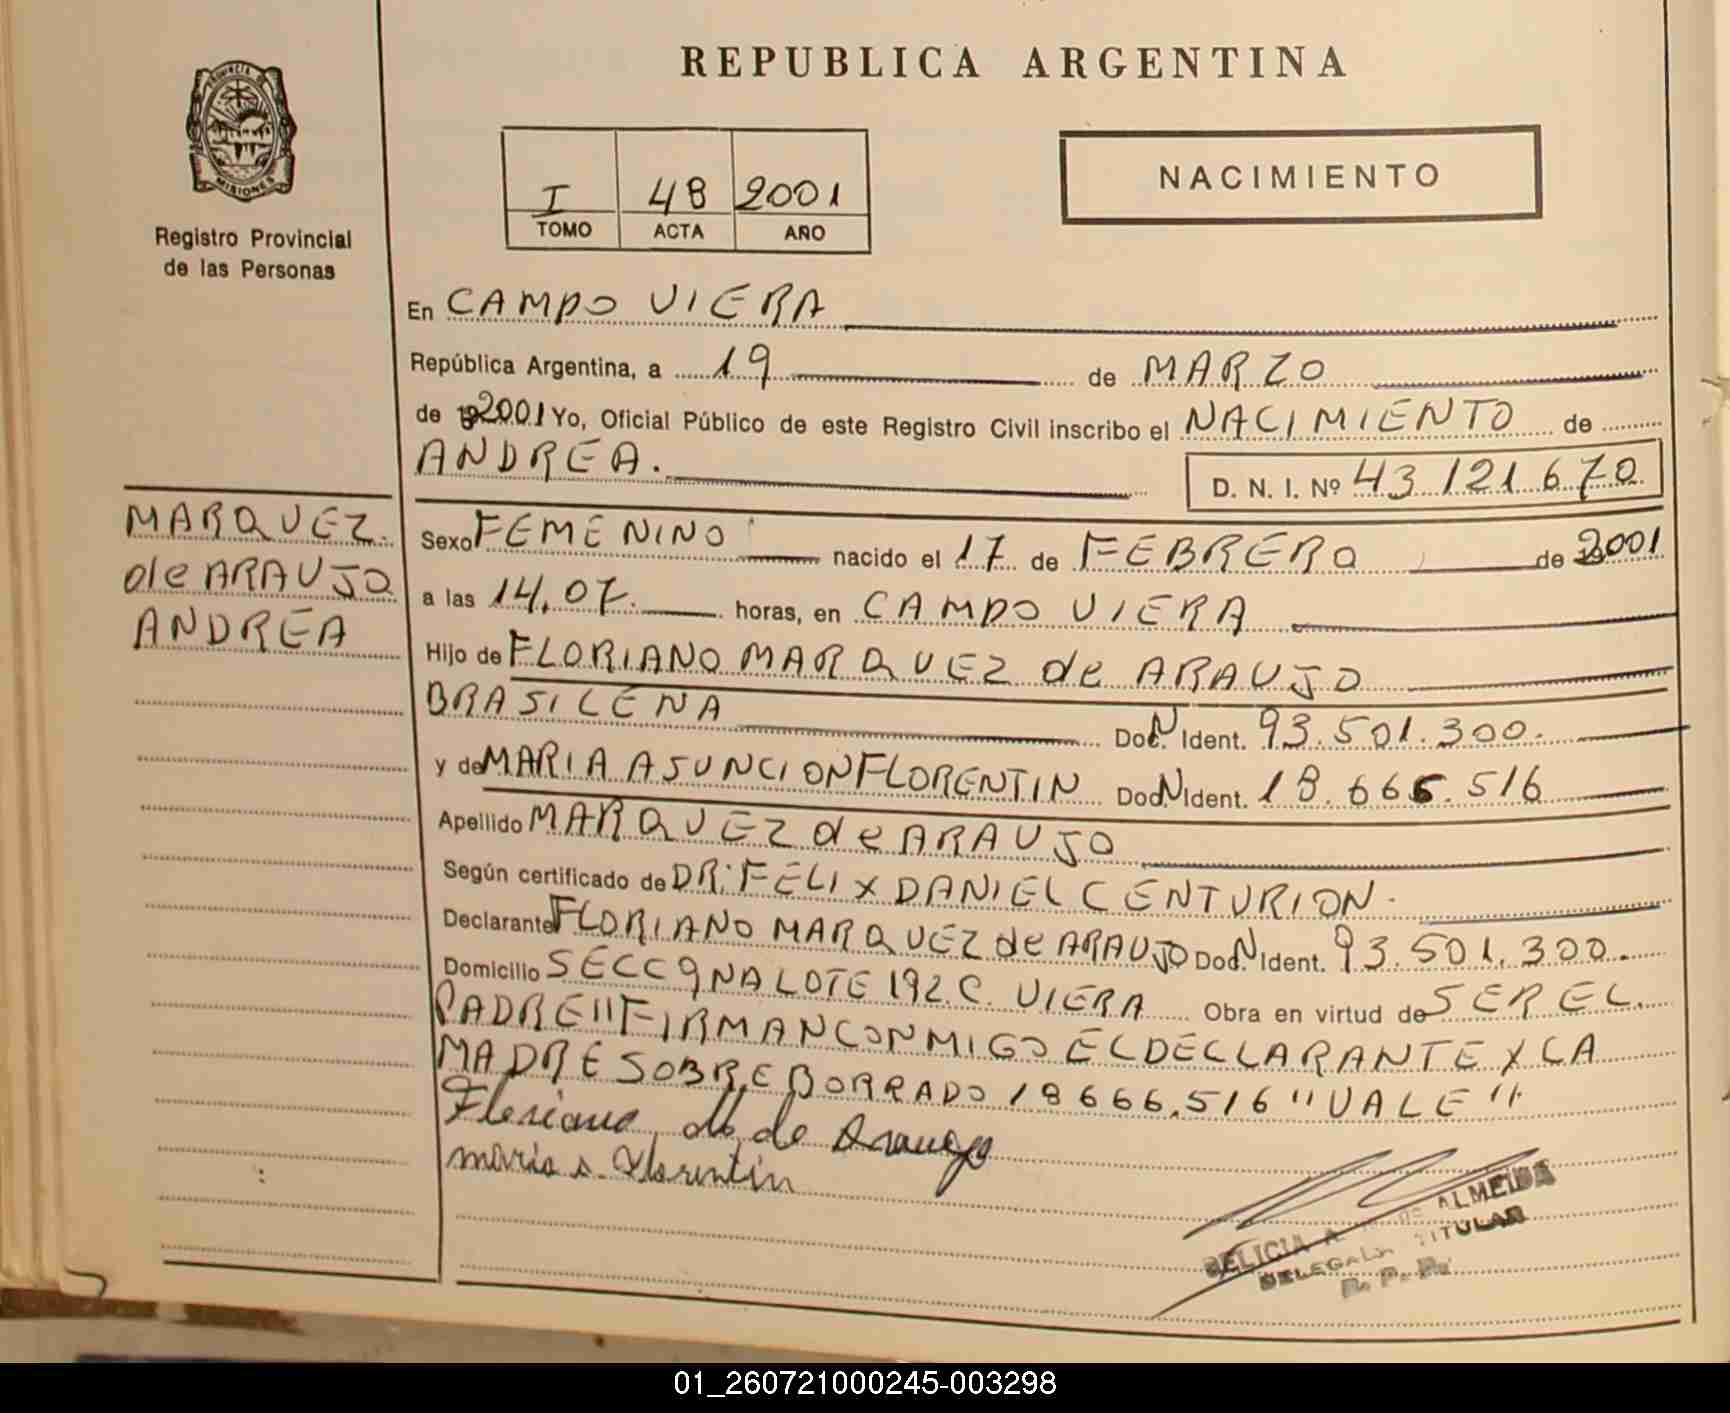 PROVINCIA DE
MISIONES
Registro Provincial
de las Personas
MARQUEZ
de ARAUJO
ANDREA
REPUBLICA ARGENTINA
I 48 2001
TOMO ACTA AÑO
NACIMIENTO
En CAMPO VIERA
República Argentina, a 19 de MARZO
de 2001 Yo, Oficial Público de este Registro Civil inscribo el NACIMIENTO de
ANDREA. D. N. I. Nº 43.121.670
Sexo FEMENINO nacido el 17 de FEBRERO de 2001
a las 14,07. horas, en CAMPO VIERA
Hijo de FLORIANO MARQUEZ de ARAUJO
BRASILENA Doc. N Ident. 93.501.300.
y de MARIA ASUNCION FLORENTIN Doc. N Ident. 18.666.516
Apellido MARQUEZ de ARAUJO
Según certificado de DR: FELIX DANIEL CENTURION.
Declarante FLORIANO MARQUEZ de ARAUJO Doc. N Ident. 93.501.300.
Domicilio SECC 9NA LOTE 192 C. VIERA Obra en virtud de SER EL
PADRE "FIRMAN CONMIGO EL DECLARANTE Y LA
MADRE SOBRE BORRADO 18666.516 "VALE"
Floriano de Araujo
maria a. Florentin
DELICIA A ALMEIDA
DELEGADA TITULAR
R. P. P.
01_260721000245-003298